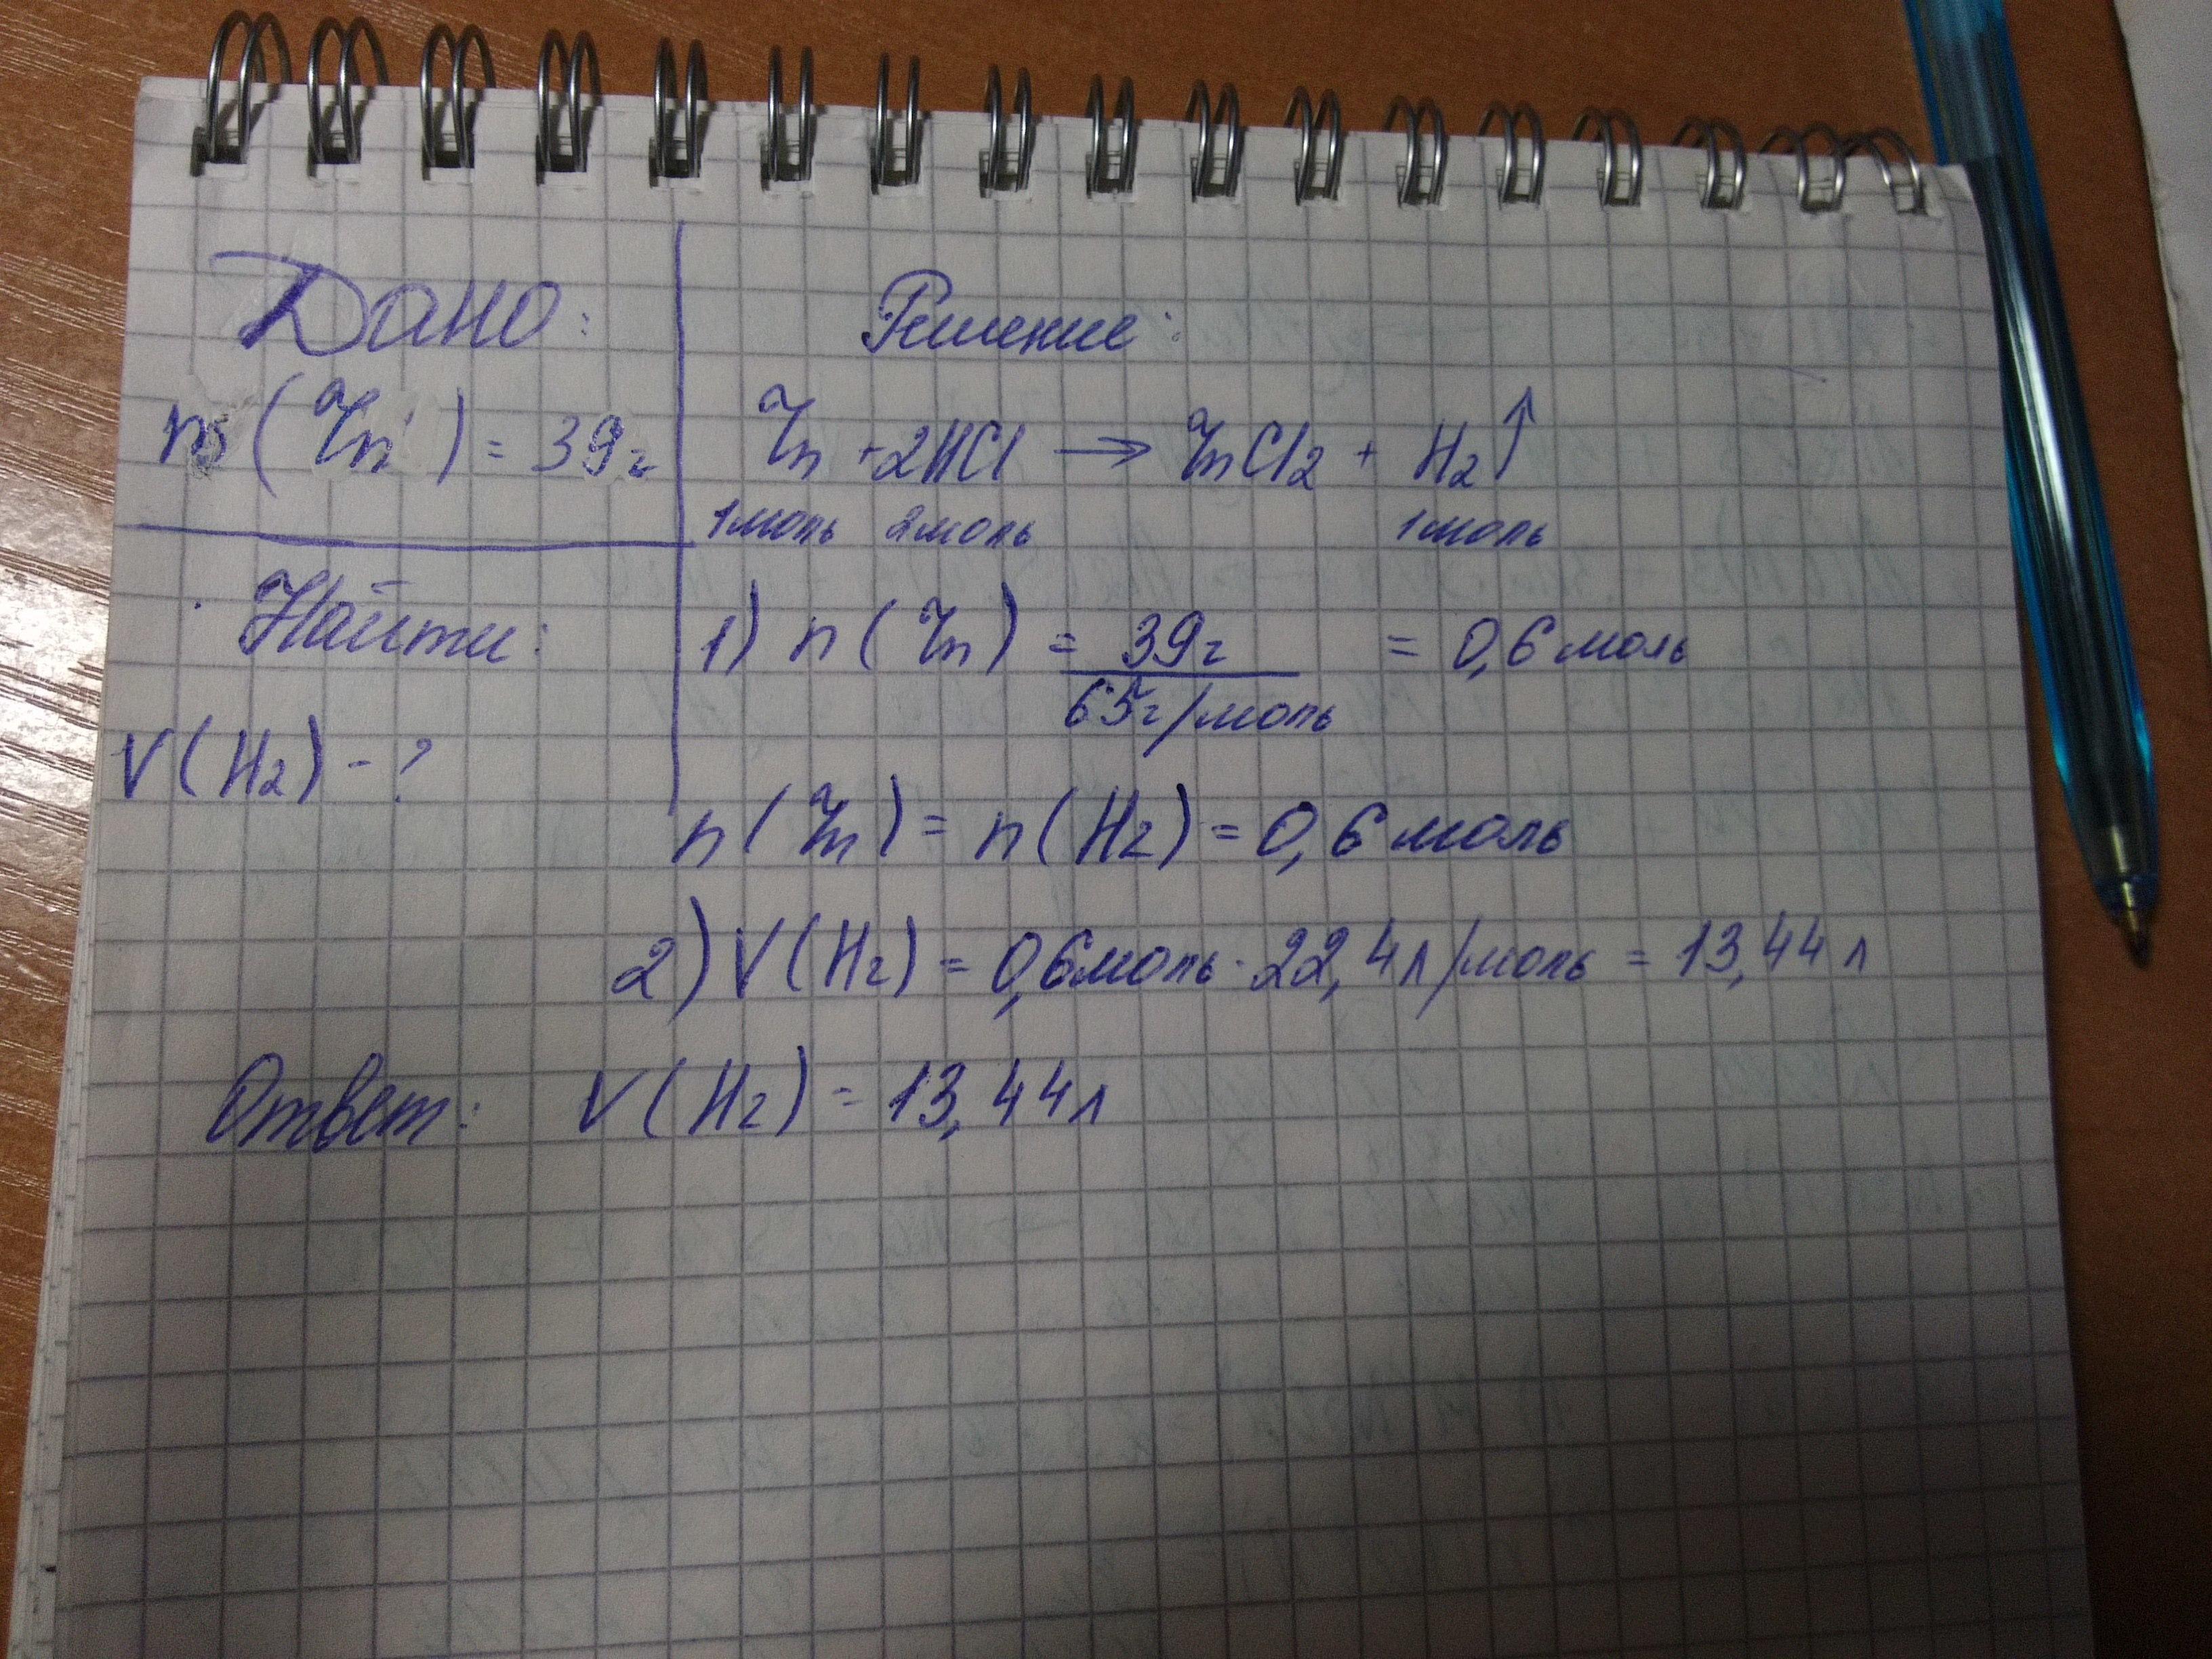 Дано:
m(Zn) = 39г
Найти:
V(H2) - ?
Решение:
Zn + 2HCl → ZnCl2 + H2↑
1моль 2моль 1моль
1) n(Zn) = 39г = 0,6 моль
65г/моль
n(Zn) = n(H2) = 0,6 моль
2) V(H2) = 0,6моль · 22,4л/моль = 13,44л
Ответ: V(H2) = 13,44л